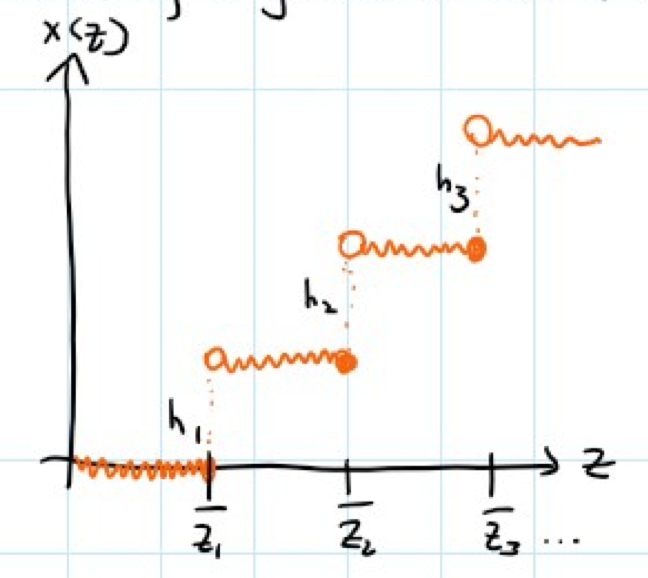 x(z)
h3
h2
h1
z
z̅1 z̅2 z̅3 ...